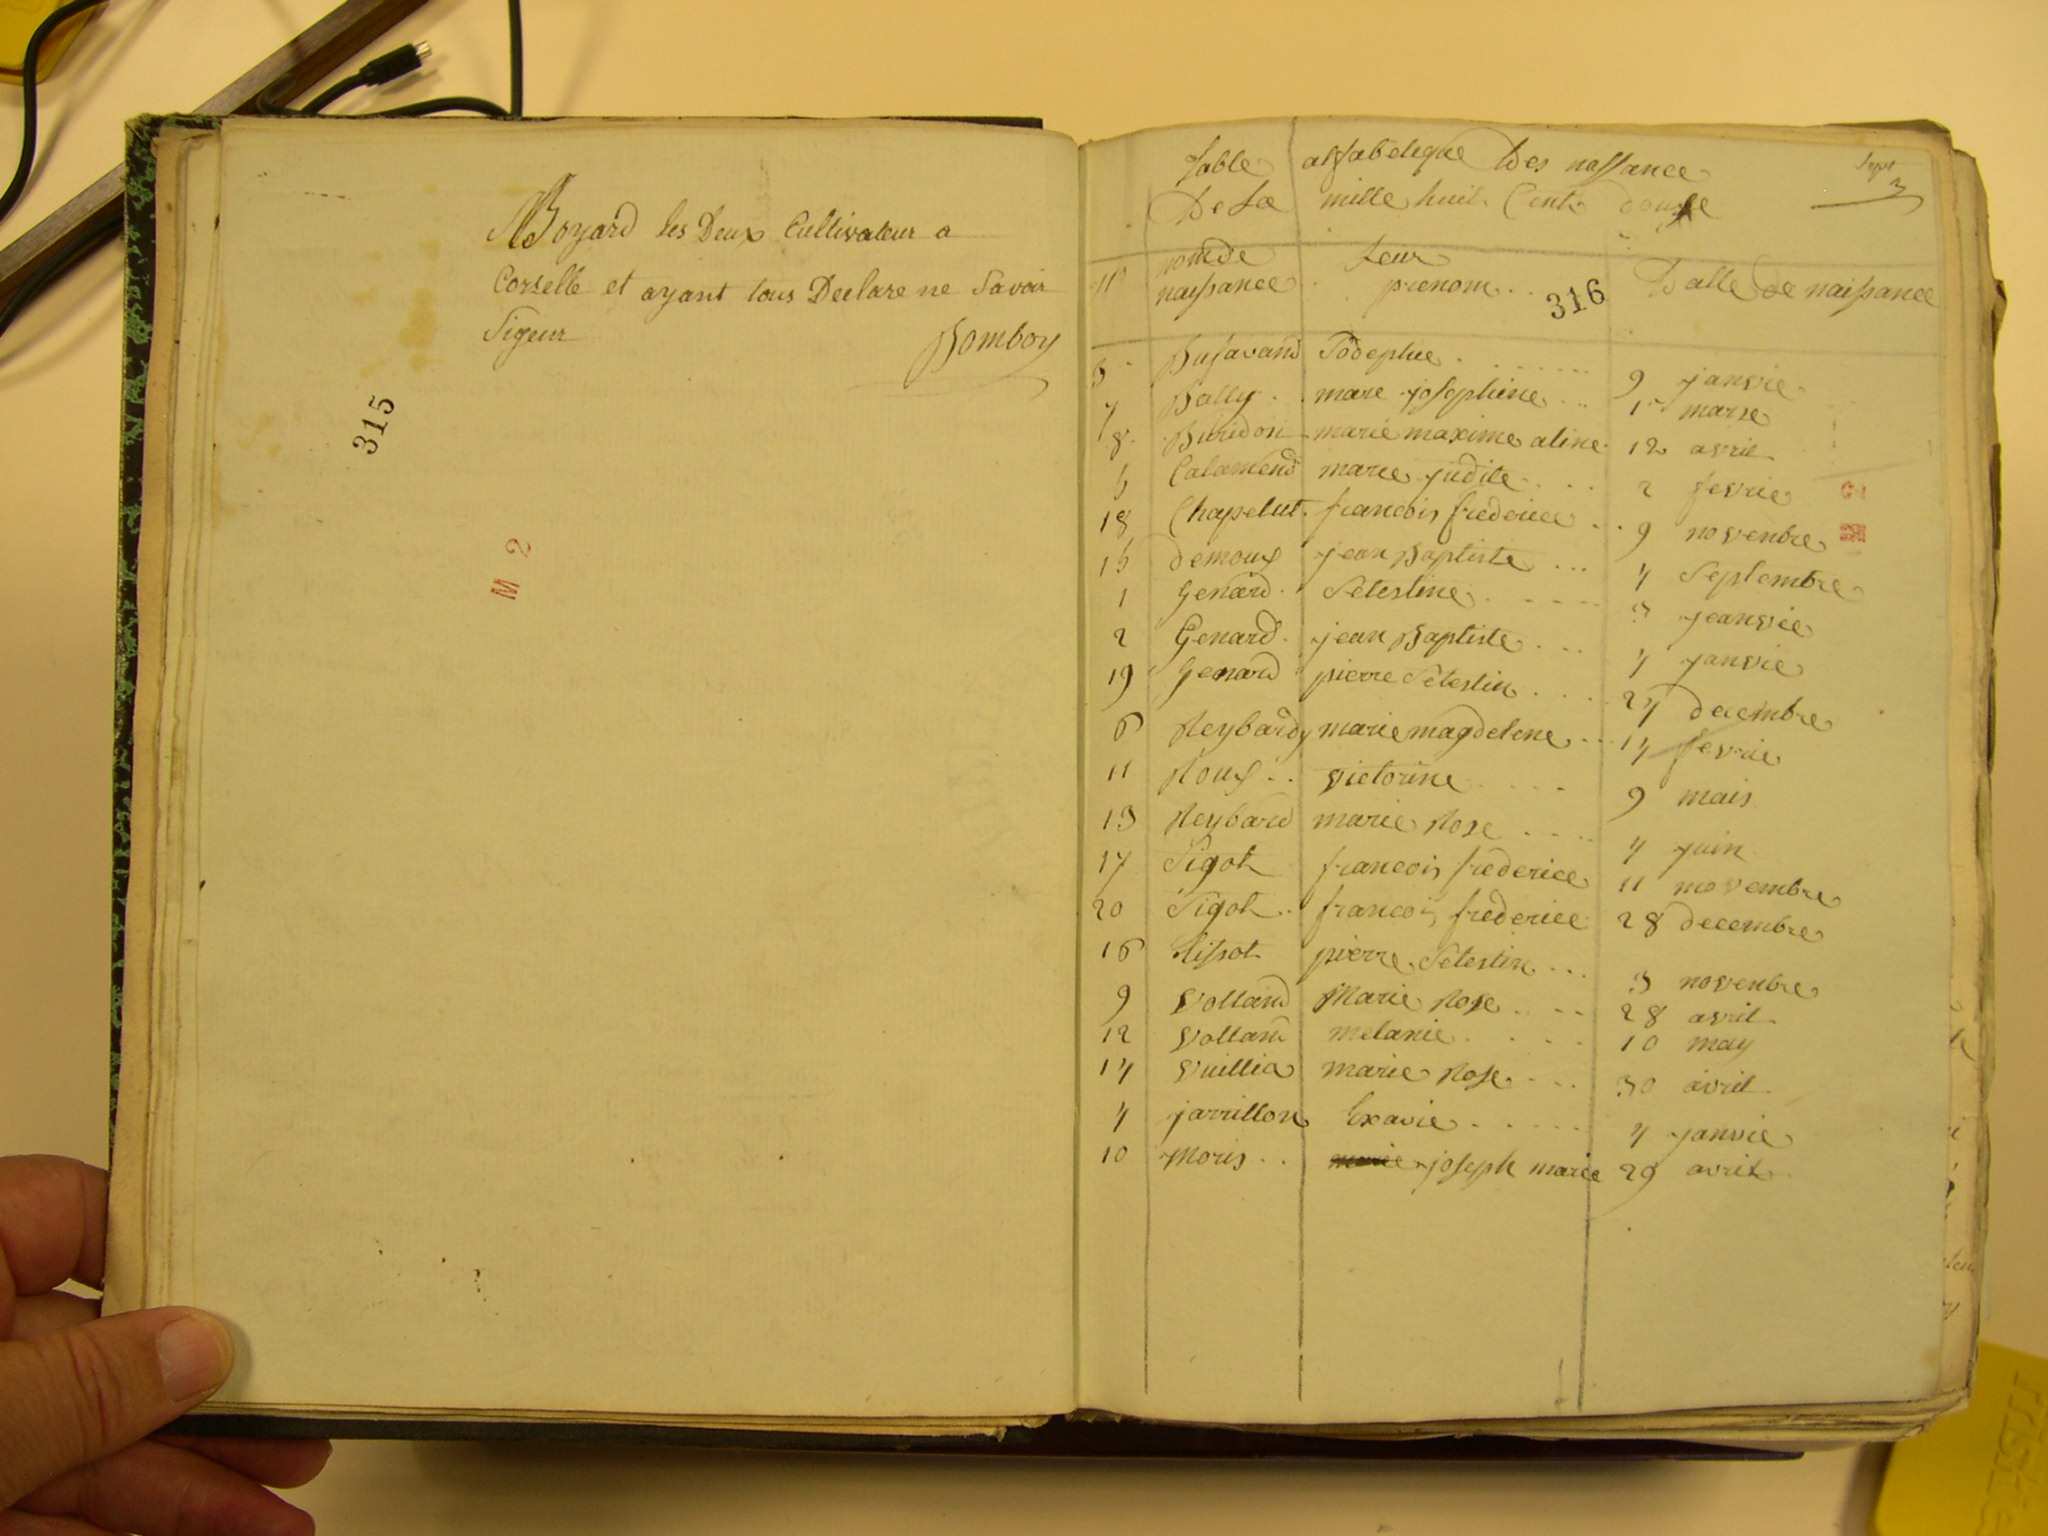 Boyard les Deux Cultivateur a
Corselle et ayant tous Declare ne Savoir
Signeur
Bomboy
315
M 2
Table alfabetique Des nassance
De La mille huit Cent douse
Sept
3
nom de naissance Leur prenom Datte de naissance
316
3 Busavand Jodephe 9 janvie
7 Bally marie josephine 1er marse
8 Buridon marie maxime aline 12 avril
5 Calamend marie judite 2 fevrie
18 Chapelut francois frederice 9 novenbre
15 demoux jean Baptiste 4 Septembre
1 Genard Selestine 3 jeanvie
2 Genard jean Baptiste 4 janvie
19 Genard pierre Selestin 24 decembre
6 Reybardy marie magdelene 14 fevrie
11 Roux victorine 9 mais
13 Reybard marie Rose 4 juin
17 Pigot francois frederice 11 movembre
20 Pigot francois frederice 28 decembre
16 Tissot pierre Selestin 3 novenbre
9 Volland Marie Rose 28 avril
12 Volland melanie 10 may
14 Vuillia marie Rose 30 avril
4 jarrillon Exavie 4 janvie
10 Moris joseph marie 29 avril